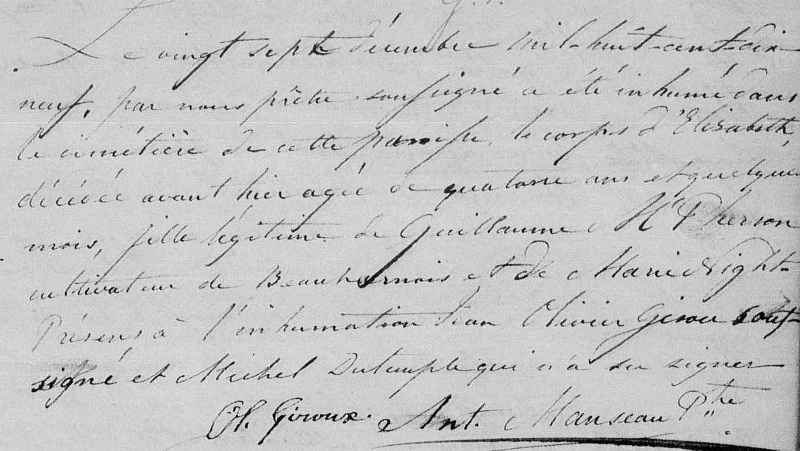 Le vingt sept décembre mil-huit-cent-dix
neuf, par nous prêtre soussigné a été inhumé dans
le cimétière de cette paroisse, le corps d'Elizabeth,
décédée avant hier agée de quatorse ans et quelque
mois, fille légitime de Guillaume Mc Pherson
cultivateur de Beauharnois et de Marie Night-
Présens à l'inhumation Jean Olivier Girou sous-
signé et Michel Dutemple qui n'a su signer
Ol. Giroux. Ant. Manseau Ptre